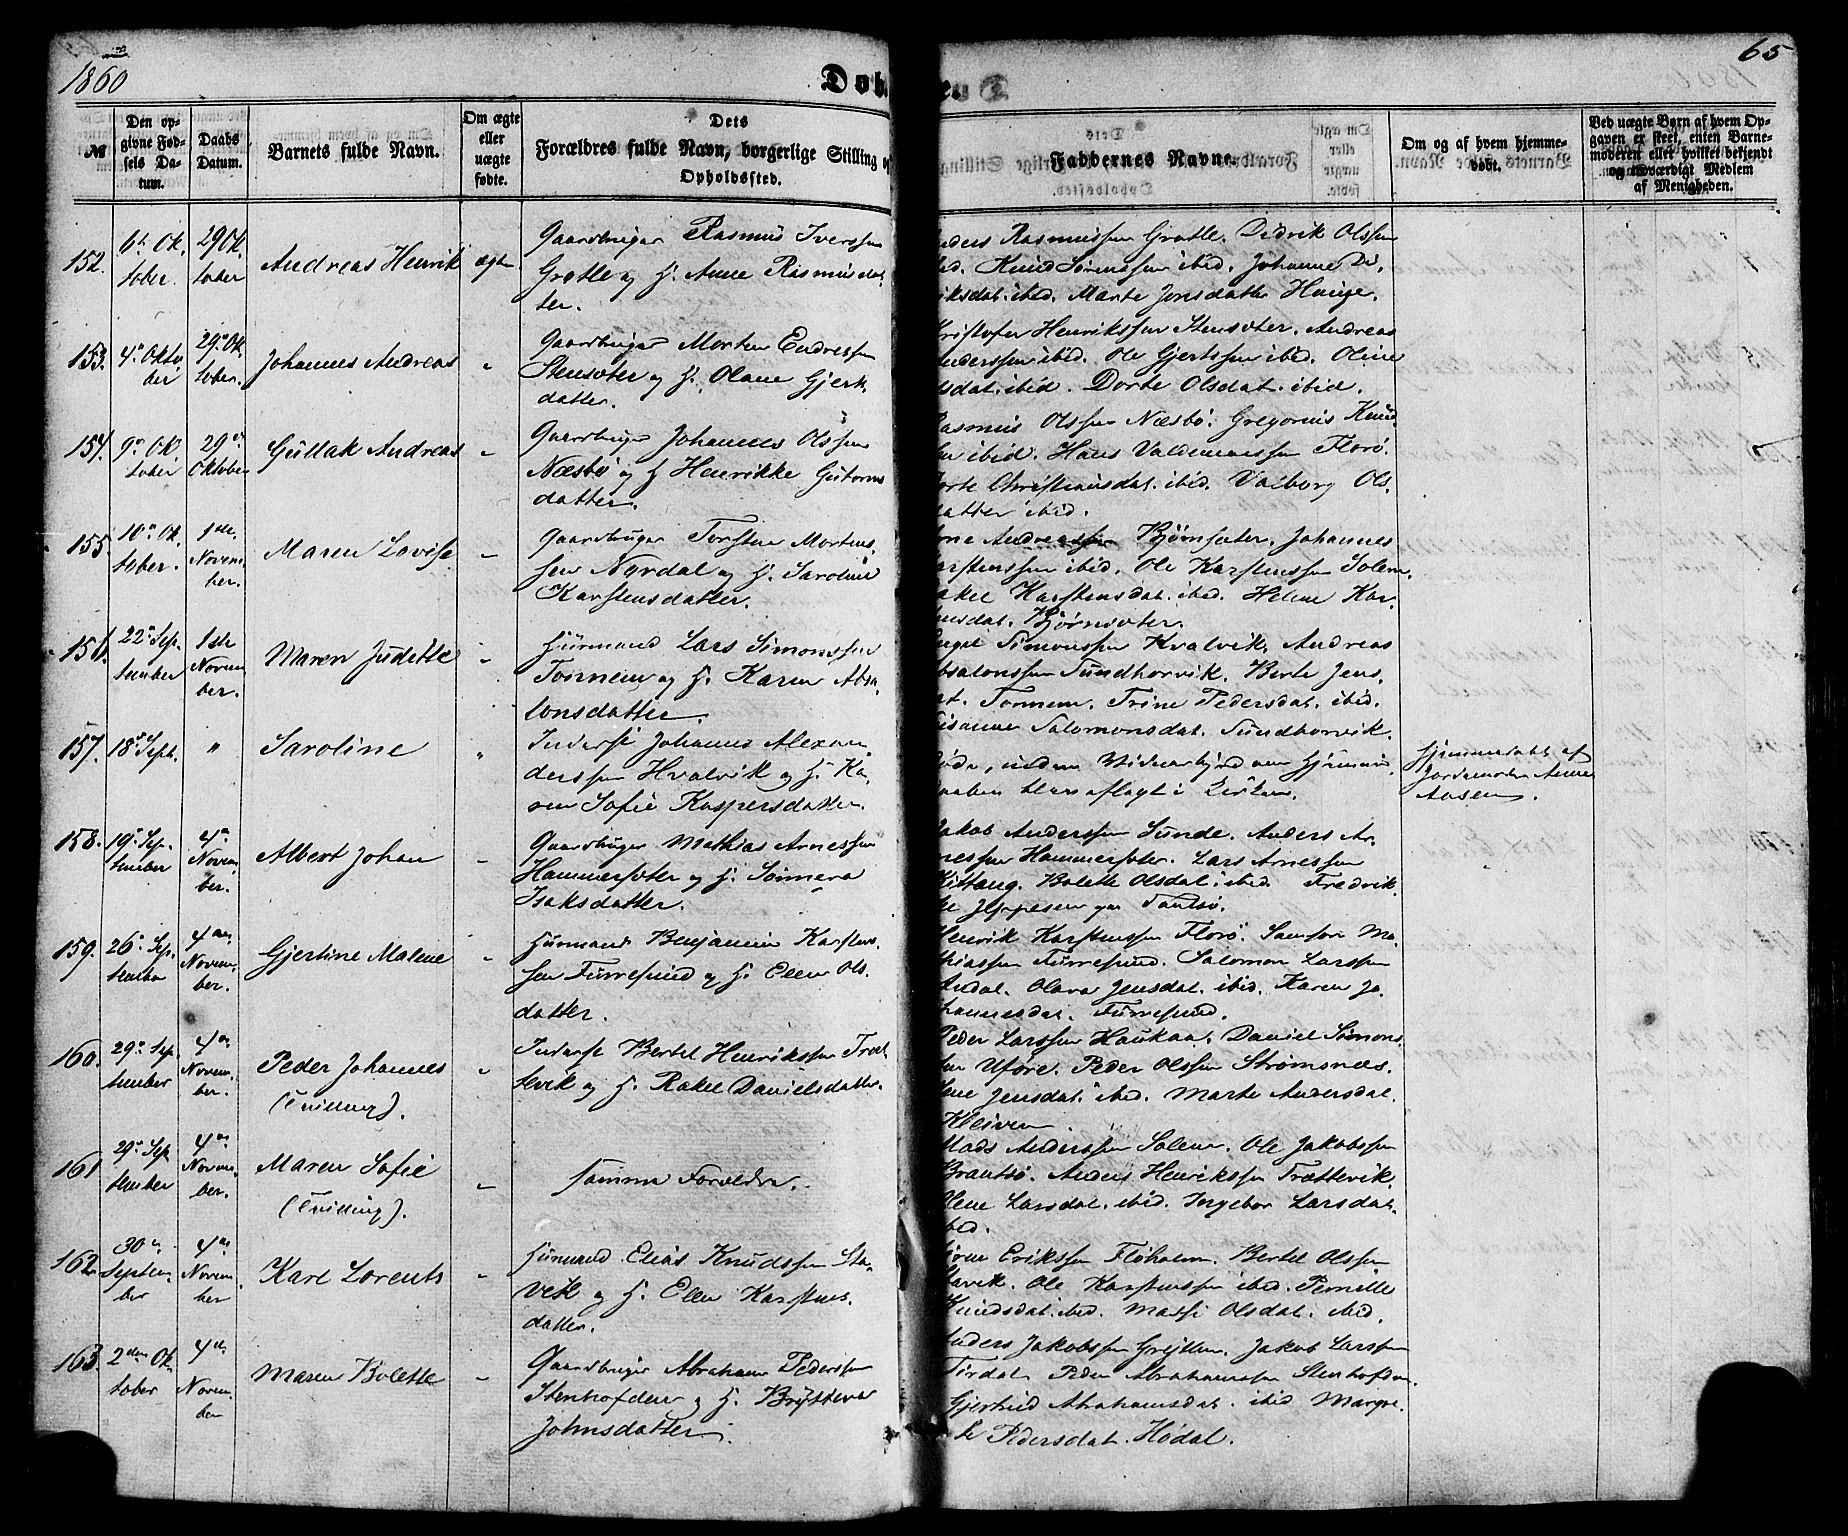 1860
Døb
65
№
Den op-
givne Fød-
sels Da-
tum.
Daabs
Datum.
Barnets fulde Navn.
Om ægte
eller
uægte
fødte.
Dets
Forældres fulde Navn, borgerlige Stilling og
Opholdssted.
Faddernes Navne.
Om og af hvem hjemme-
døbt.
Ved uægte Børn af hvem Op-
gaven er skeet, enten Barne-
moderen eller hvilket bekjendt
og troværdigt Medlem
af Menigheden.
152.
6te Ok
tober.
29 Ok
tober
Andreas Henrik
ægte
Gaardbruger Rasmus Iverssen
Grotle og H. Anne Rasmusdat-
ter.
Anders Rasmussen Grotle. Didrik Olssen
ibid. Knud Sørenssen ibid. Johanne Di-
riksdat. ibid. Marte Jonsdatter Hauge.
153.
4de Okto
ber
29de Ok
tober.
Johannes Andreas
"
Gaardbruger Morten Endressen
Stensæter og H. Olane Gjert-
datter.
Kristofer Henrikssen Stensæter. Andreas
Anderssen ibid. Ole Gjertssen ibid. Oline
Olsdat. ibid. Dorte Olsdat. ibid.
154.
9de Ok
tober
29de
Oktober
Gullak Andreas
"
Gaardbruger Johannes Olssen
Næsbø og H. Henrikke Gutorms
datter.
Rasmus Olssen Næsbø. Gregorius Knud-
sen ibid. Hans Valdemarssen Florø.
Dorte Christiansdat. ibid. Valborg Ols-
datter ibid.
155.
10de Ok
tober.
1ste
Novem
ber.
Maren Lovise
"
Gaardbruger Torsten Mortens-
sen Nordal og H. Saroline
Karstensdatter.
Arne Andreassen Bjørnsæter. Johannes
Karstenssen ibid. Ole Karstenssen Solem.
Rakel Karstensdat. ibid. Helene Kar-
stensdat. Bjørnsæter.
156.
22de Sep-
tember
1ste
Novem
ber.
Maren Judithe
"
Husmand Lars Simonssen
Tonnem og H. Karen Absa-
lonsdatter.
Engel Simonssen Kvalvik. Andreas
Absalonssen Sundhorvik. Berte Jens-
dat. Tonnem. Trine Pedersdat. ibid.
Susanne Salomonsdat. Sundhorvik.
157.
18de Sept.
"
Saroline
"
Inderst Johannes Alexan-
derssen Hvalvik og H. Ka-
ren Sofie Kaspersdatter.
Døde, inden Vidnesbyrd om Hjemme-
daaben blev aflagt i Kirken.
Hjemmedøbt af
Jordemoder Anne
Aasen.
158.
19de Sep-
tember
4de
Novem
ber.
Albert Johan
"
Gaardbruger Mathias Arnessen
Hammersæter og H. Sunneva
Isaksdatter.
Jakob Anderssen Sunde. Anders Ar-
nessen Hammersæter. Lars Arnessen
Kittang. Bolette Olsdat. ibid. Fredrik-
ke Jeppesen paa Tansø.
159.
26de Sep
tember
4de
Novem-
ber.
Gjertine Malene
"
Husmand Benjamin Karstens-
sen Furresund og H. Ellen Ols-
datter.
Henrik Karstenssen Florø. Samson Ma-
thiassen Furresund. Salomon Larssen
Andal. Olava Jensdat. ibid. Karen Jo-
hannesdat. Furresund.
160.
29de Sep
tember
4de
Novem-
ber.
Peder Johannes
(Tvilling).
"
Inderst Bertel Henrikssen Træt-
tevik og H. Rakel Danielsdatter.
Peder Larssen Haukaa. Daniel Simons-
sen Uføre. Peder Olssen Strømsnæs.
Lene Jensdat. ibid. Marte Andersdat.
Kleiven.
161
29de Sep
tember
4de
Novem-
ber.
Maren Sofie
(Tvilling).
"
samme Forældre.
Mads Anderssen Solem. Ole Jakobssen
Brantsø. Anders Henrikssen Trættevik.
Olene Larsdat. ibid. Ingebor Larsdat.
ibid.
162.
30de
Septem
ber
4de
Novem
ber
Karl Lorents
"
Husmand Elias Knudssen Sta-
vik og H. Ellen Karstens-
datter.
Eriksen Fløholm. Bertel Olssen
Stavik. Ole Karstenssen ibid. Pernille
Knudsdat. ibid. Matsi Olsdat. ibid.
163.
2den Ok
tober
4de
Novem-
ber
Maren Bolette
"
Gaardbruger Abraham Pederssen
Stenhofden og H. Brytheva
Johnsdatter.
Anders Jakobssen Jakob Larssen
Tirdal. Peder Abrahamssen Stenhofden.
Gjertrud Abrahamsdat. ibid Margre-
te Pedersdat. Hødal.